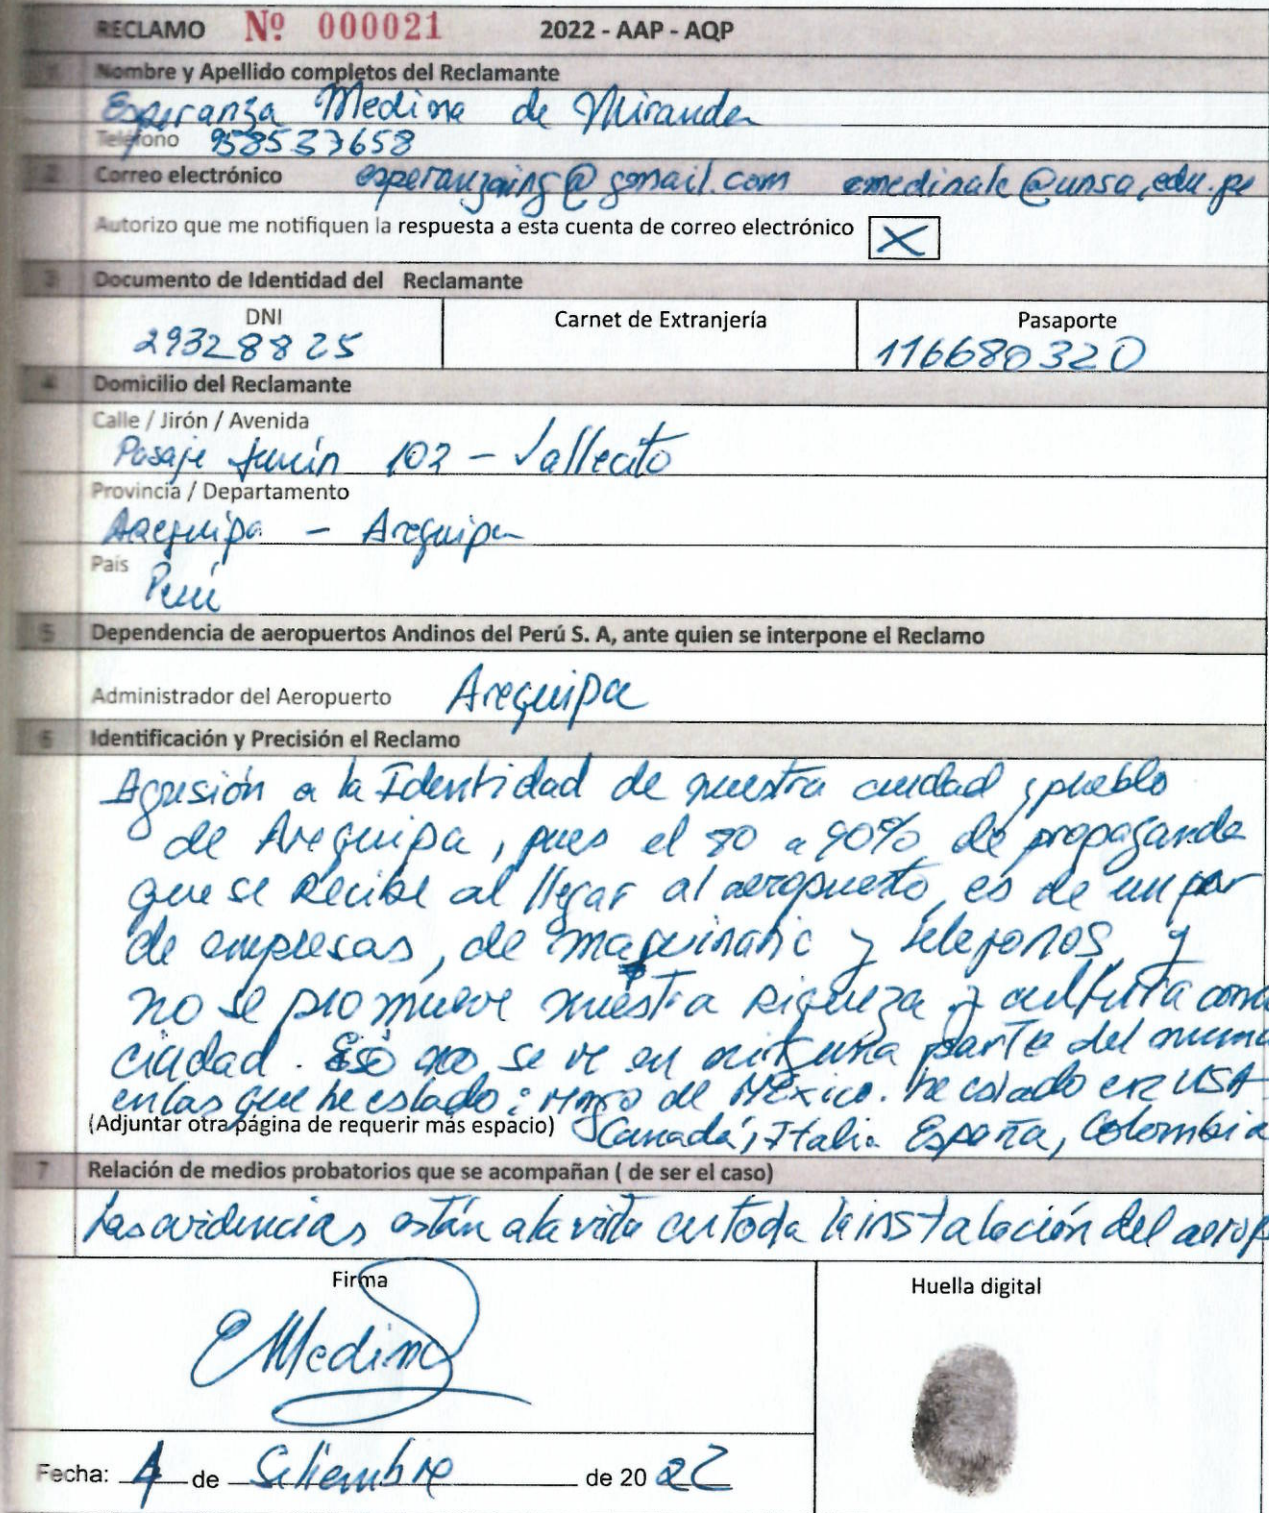 RECLAMO Nº 000021 2022 - AAP - AQP
1 Nombre y Apellido completos del Reclamante
Esperanza Medina de Miranda
Teléfono 958537658
2 Correo electrónico esperanzaing@gmail.com emedinale@unsa.edu.pe
Autorizo que me notifiquen la respuesta a esta cuenta de correo electrónico X
3 Documento de Identidad del Reclamante
DNI Carnet de Extranjería Pasaporte
29328825 116680320
4 Domicilio del Reclamante
Calle / Jirón / Avenida
Pasaje Junín 102 - Vallecito
Provincia / Departamento
Arequipa - Arequipa
País
Perú
5 Dependencia de aeropuertos Andinos del Perú S. A, ante quien se interpone el Reclamo
Administrador del Aeropuerto Arequipa
6 Identificación y Precisión el Reclamo
Agresión a la Identidad de nuestra ciudad y pueblo
de Arequipa, pues el 80 a 90% de propaganda
que se recibe al llegar al aeropuerto, es de un par
de empresas, de maquinaric y telefonos, y
no se promueve nuestra riqueza y cultura como
ciudad. Eso no se ve en ninguna parte del mund
en las que he estado: Mngo de México. he estado en USA
(Adjuntar otra página de requerir más espacio) Canadá, Italia España, Colombia
7 Relación de medios probatorios que se acompañan ( de ser el caso)
Las evidencias están a la vista en toda la instalación del aerop
Firma Huella digital
EMedina
Fecha: 4 de Setiembre de 2022